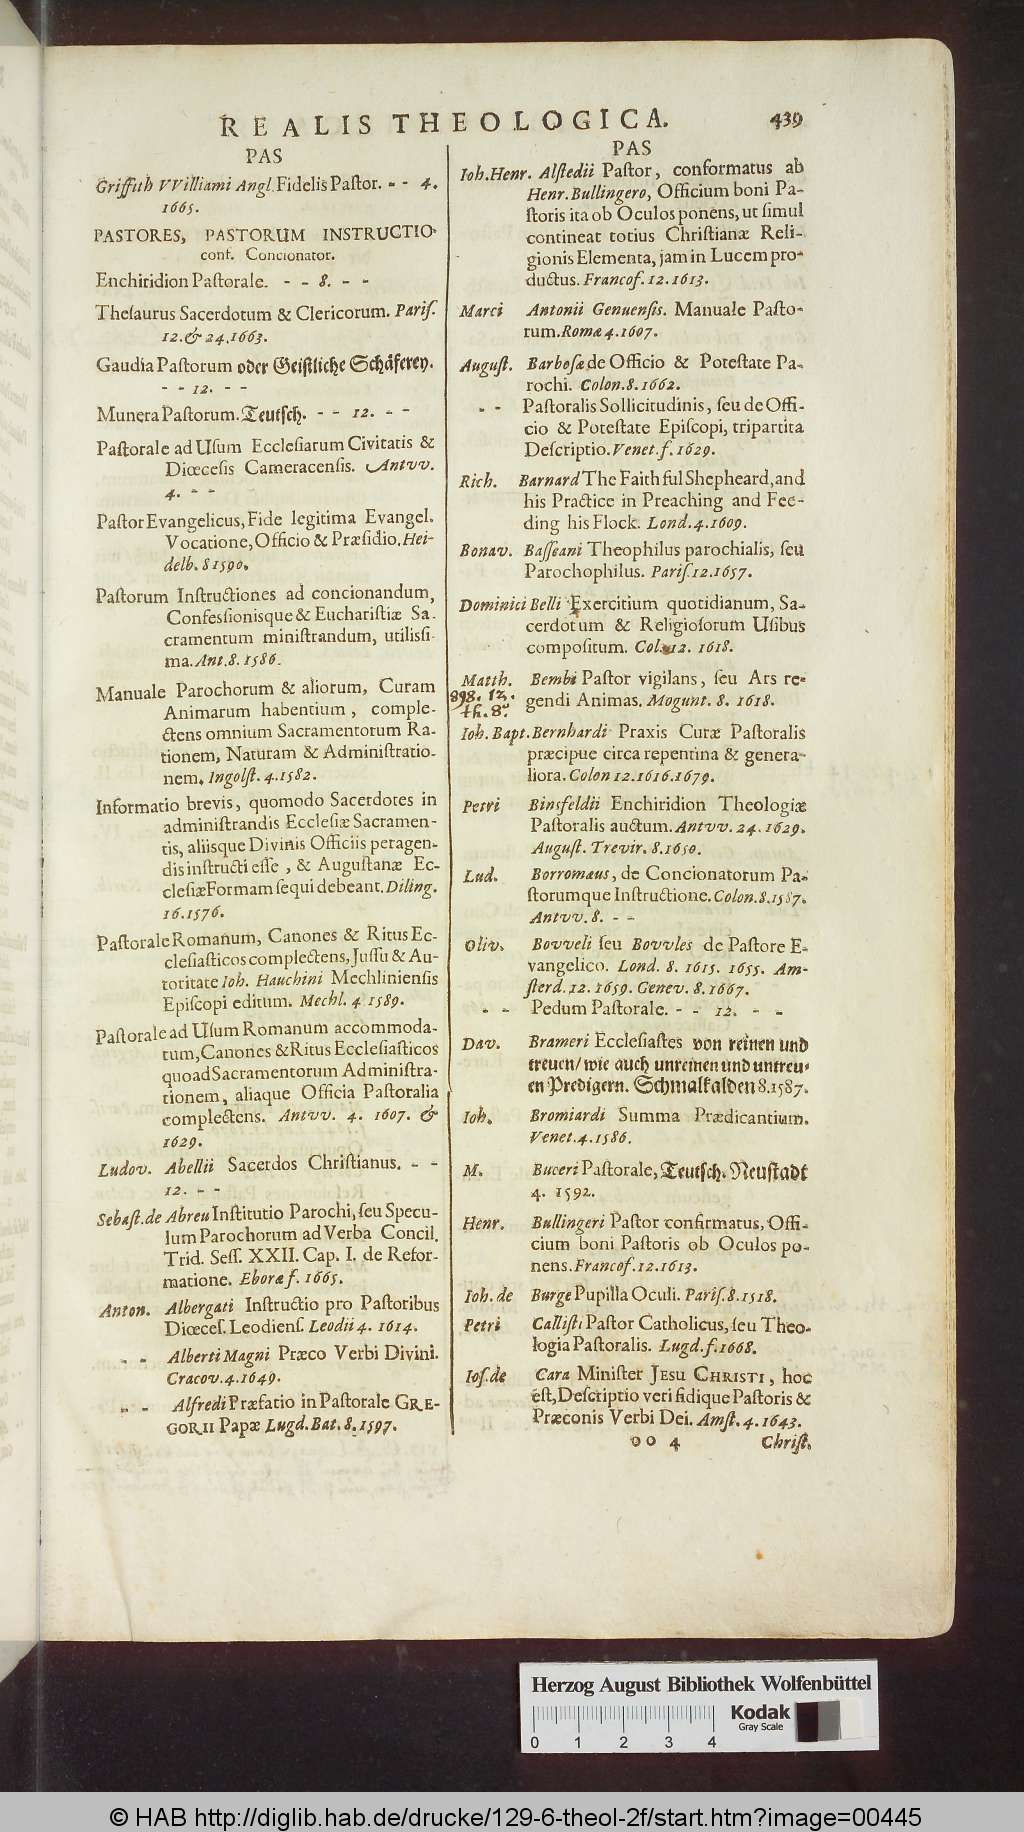 REALIS THEOLOGICA. 439
PAS
Griffith VVilliami Angl. Fidelis Pastor. - - 4.
1665.
PASTORES, PASTORUM INSTRUCTIO.
conf. Concionator.
Enchiridion Pastorale. - - 8. - -
Thesaurus Sacerdotum & Clericorum. Paris.
12. & 24. 1663.
Gaudia Pastorum oder Geistliche Schäferey.
- - 12. - -
Munera Pastorum. Teutsch. - - 12. - -
Pastorale ad Usum Ecclesiarum Civitatis &
Diœcesis Cameracensis. Antvv.
4. - -
Pastor Evangelicus, Fide legitima Evangel.
Vocatione, Officio & Præsidio. Hei-
delb. 8 1590.
Pastorum Instructiones ad concionandum,
Confessionisque & Eucharistiæ Sa-
cramentum ministrandum, utilissi-
ma. Ant. 8. 1586.
Manuale Parochorum & aliorum, Curam
Animarum habentium, comple-
ctens omnium Sacramentorum Ra-
tionem, Naturam & Administratio-
nem. Ingolst. 4. 1582.
Informatio brevis, quomodo Sacerdotes in
administrandis Ecclesiæ Sacramen-
tis, aliisque Divinis Officiis peragen-
dis instructi esse, & Augustanæ Ec-
clesiæ Formam sequi debeant. Diling.
16. 1576.
Pastorale Romanum, Canones & Ritus Ec-
clesiasticos complectens, Jussu & Au-
toritate Ioh. Hauchini Mechliniensis
Episcopi editum. Mechl. 4 1589.
Pastorale ad Usum Romanum accommoda-
tum, Canones & Ritus Ecclesiasticos
quoad Sacramentorum Administra-
tionem, aliaque Officia Pastoralia
complectens. Antvv. 4. 1607. &
1629.
Ludov. Abellii Sacerdos Christianus. - -
12. - -
Sebast. de Abreu Institutio Parochi, seu Specu-
lum Parochorum ad Verba Concil.
Trid. Sess. XXII. Cap. I. de Refor-
matione. Eboræ f. 1665.
Anton. Albergati Instructio pro Pastoribus
Diœces. Leodiens. Leodii 4. 1614.
- - Alberti Magni Præco Verbi Divini.
Cracov. 4. 1649.
- - Alfredi Præfatio in Pastorale GRE-
GORII Papæ Lugd. Bat. 8. 1597.
PAS
Ioh. Henr. Alstedii Pastor, conformatus ab
Henr. Bullingero, Officium boni Pa-
storis ita ob Oculos ponens, ut simul
contineat totius Christianæ Reli-
gionis Elementa, jam in Lucem pro-
ductus. Francof. 12. 1613.
Marci Antonii Genuensis. Manuale Pasto-
rum. Romæ 4. 1607.
August. Barbosæ de Officio & Potestate Pa-
rochi. Colon. 8. 1662.
- - Pastoralis Sollicitudinis, seu de Offi-
cio & Potestate Episcopi, tripartita
Descriptio. Venet. f. 1629.
Rich. Barnard The Faithful Shepheard, and
his Practice in Preaching and Fee-
ding his Flock. Lond. 4. 1609.
Bonav. Basseani Theophilus parochialis, seu
Parochophilus. Paris. 12. 1657.
Dominici Belli Exercitium quotidianum, Sa-
cerdotum & Religiosorum Usibus
compositum. Col. 12. 1618.
Matth. Bembi Pastor vigilans, seu Ars re-
898. 12. gendi Animas. Mogunt. 8. 1618.
th. 8.
Ioh. Bapt. Bernhardi Praxis Curæ Pastoralis
præcipue circa repentina & genera-
liora. Colon 12. 1616. 1679.
Petri Binsfeldii Enchiridion Theologiæ
Pastoralis auctum. Antvv. 24. 1629.
August. Trevir. 8. 1650.
Lud. Borromæus, de Concionatorum Pa-
storumque Instructione. Colon. 8. 1587.
Antvv. 8. - -
Oliv. Bovveli seu Bovvles de Pastore E-
vangelico. Lond. 8. 1615. 1655. Am-
sterd. 12. 1659. Genev. 8. 1667.
- - Pedum Pastorale. - - 12. - -
Dav. Brameri Ecclesiastes von reinen und
treuen/ wie auch unreinen und untreu-
en Predigern. Schmalkalden 8. 1587.
Ioh. Bromiardi Summa Prædicantium.
Venet. 4. 1586.
M. Buceri Pastorale, Teutsch. Neustadt
4. 1592.
Henr. Bullingeri Pastor confirmatus, Offi-
cium boni Pastoris ob Oculos po-
nens. Francof. 12. 1613.
Ioh. de Burge Pupilla Oculi. Paris. 8. 1518.
Petri Callisti Pastor Catholicus, seu Theo-
logia Pastoralis. Lugd. f. 1668.
Ios. de Cara Minister JESU CHRISTI, hoc
est, Descriptio veri fidique Pastoris &
Præconis Verbi Dei. Amst. 4. 1643.
oo 4 Christ.
Herzog August Bibliothek Wolfenbüttel
Kodak
Gray Scale
0 1 2 3 4
© HAB http://diglib.hab.de/drucke/129-6-theol-2f/start.htm?image=00445